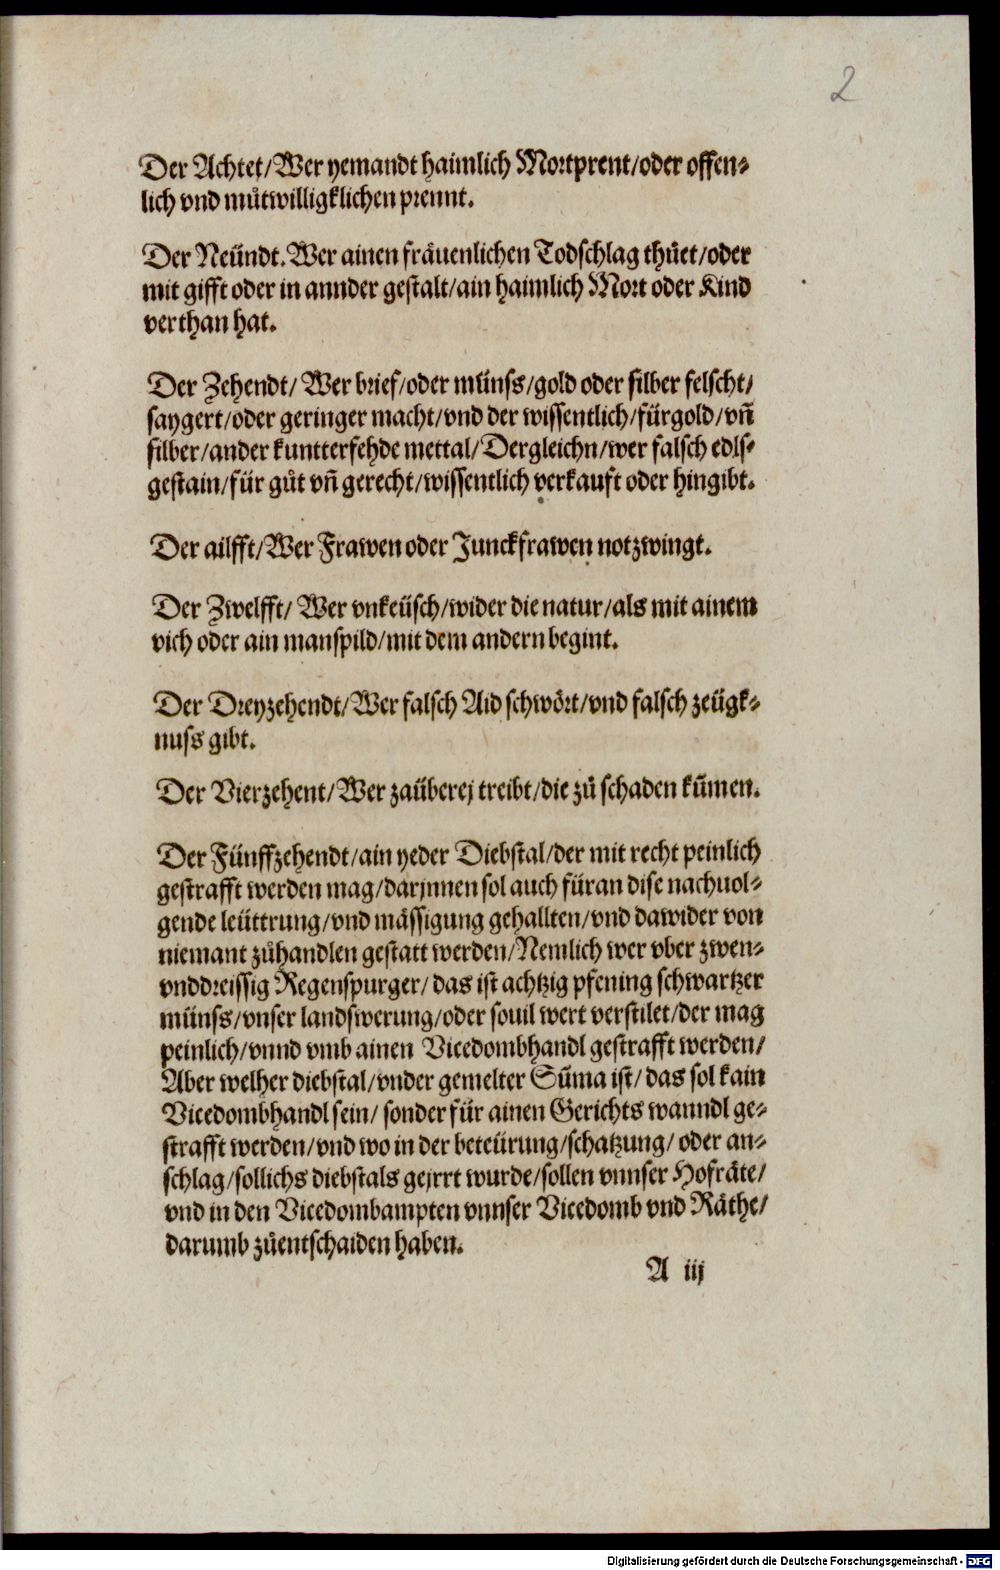 2
Der Achtet/Wer yemandt haimlich Mortprent/oder offen⸗
lich vnd můtwilligklichen prennt.
Der Neündt.Wer ainen fräuenlichen Todschlag thůet/oder
mit gifft oder in annder gestalt/ain haimlich Mort oder Kind
verthan hat.
Der Zehendt/ Wer brief/oder münss/gold oder silber felscht/
saygert/oder geringer macht/vnd der wissentlich/für gold/vñ
silber/ander kuntterfehde mettal/Dergleichn/wer falsch edls⸗
gestain/für gůt vñ gerecht/wissentlich verkauft oder hingibt.
Der ailfft/Wer Frawen oder Junckfrawen notzwingt.
Der Zwelfft/ Wer vnkeüsch/wider die natur/als mit ainem
vich oder ain manspild/mit dem andern begint.
Der Dreyzehendt/Wer falsch Aid schwört/vnd falsch zeügk⸗
nuss gibt.
Der Vierzehent/Wer zaüberej treibt/die zů schaden kūmen.
Der Fünffzehendt/ain yeder Diebstal/der mit recht peinlich
gestrafft werden mag/darjnnen sol auch füran dise nachuol⸗
gende leüttrung/vnd mässigung gehallten/vnd dawider von
niemant zůhandlen gestatt werden/Nemlich wer vber zwen⸗
vnddreissig Regenspurger/ das ist achtzig pfening schwartzer
münss/vnser landswerung/oder souil wert verstilet/der mag
peinlich/vnnd vmb ainen Vicedombhandl gestrafft werden/
Aber welher diebstal/vnder gemelter Sūma ist/ das sol kain
Vicedombhandl sein/ sonder für ainen Gerichts wanndl ge⸗
strafft werden/vnd wo in der beteürung/schatzung/ oder an⸗
schlag/sollichs diebstals gejrrt wurde/sollen vnnser Hofräte/
vnd in den Vicedombampten vnnser Vicedomb vnd Räthe/
darumb zůentschaiden haben.
A iij
Digitalisierung gefördert durch die Deutsche Forschungsgemeinschaft - DFG